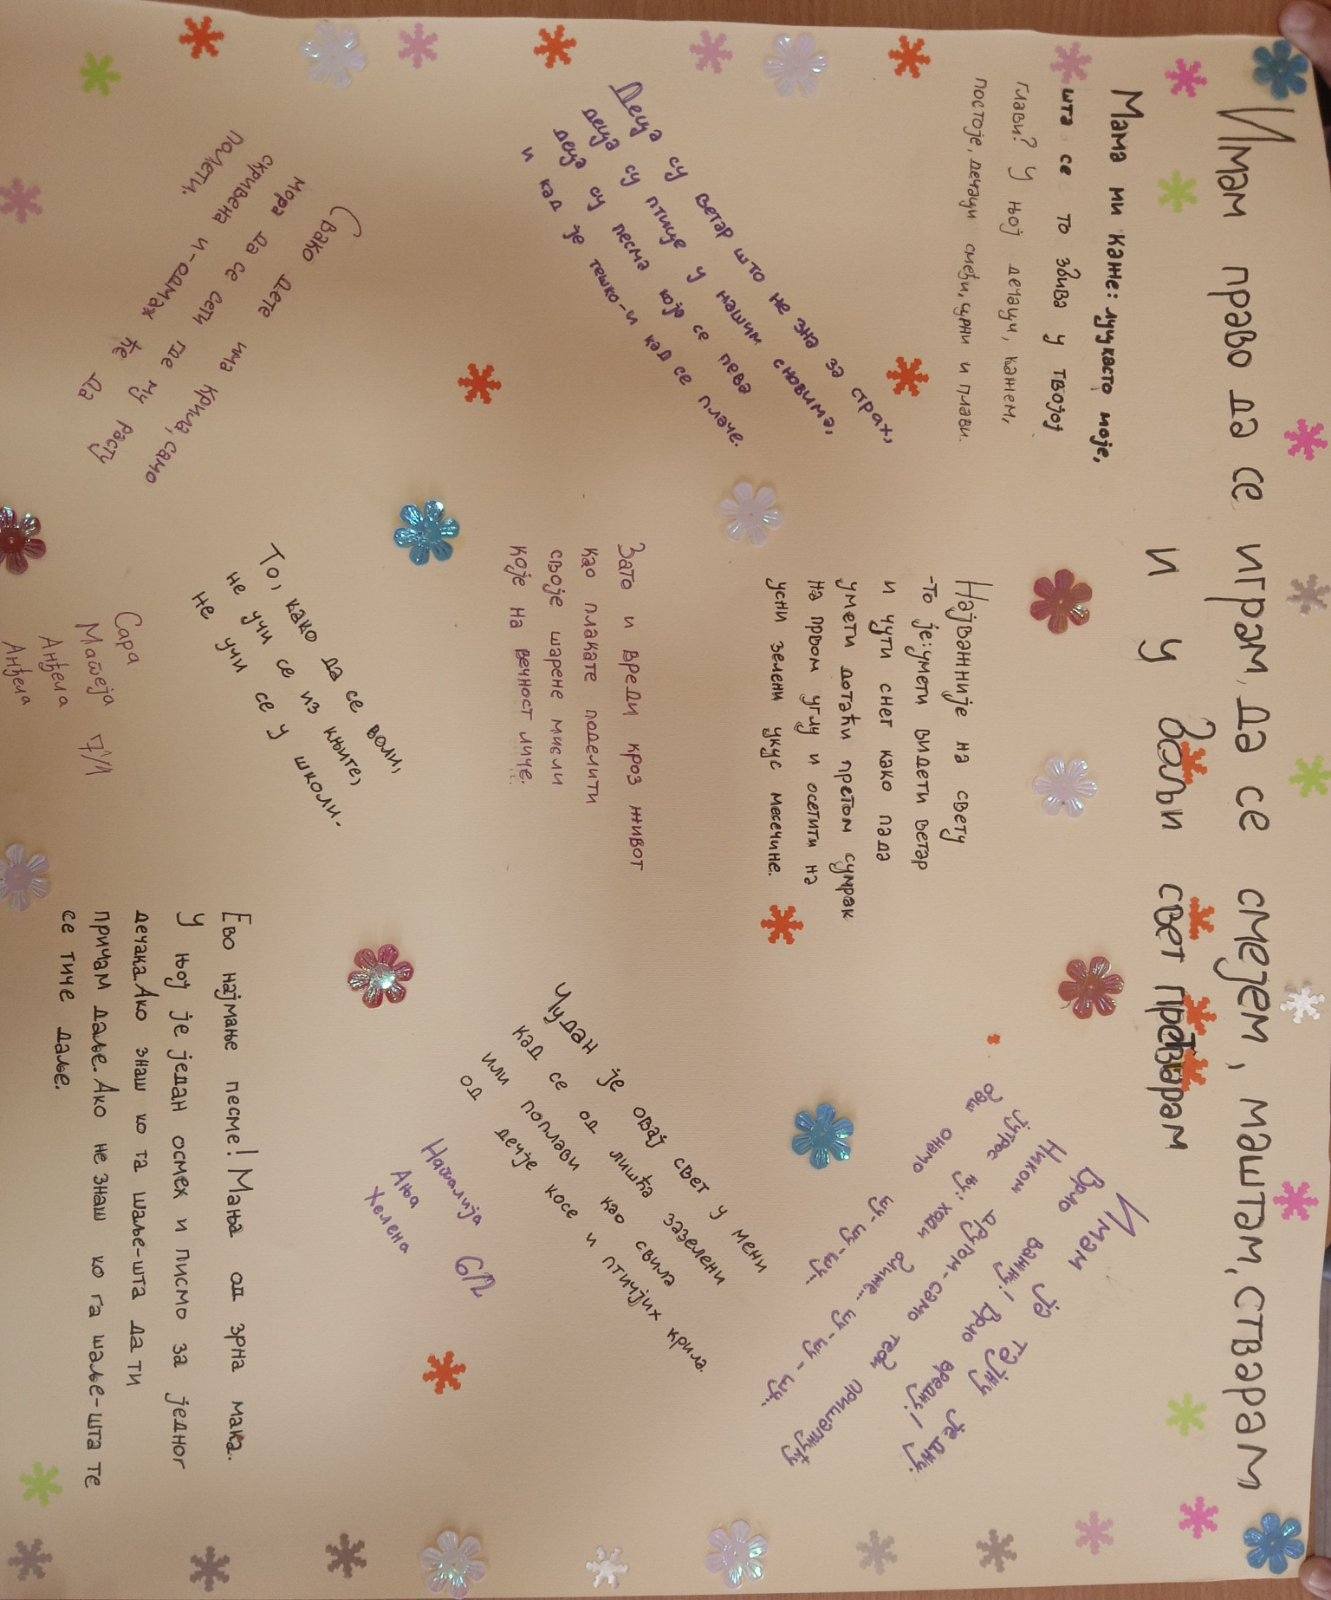 Имам право да се играм, да се смејем, маштам, стварам
и у бољи свет претварам
Мама ми каже: луцкасто моје,
шта се то збива у твојој
глави? У њој дечаци, кажем,
постоје, дечаци смеђи, црни и плави.
Деца су ветар што не зна за страх,
деца су птице у нашим сновима,
деца су песма која се пева
и кад је тешко-и кад се плаче.
Свако дете има крила, само
мора да се сети где му расту
скривена и-одмах ће да
полети.
Најважније на свету
-То је: умети видети ветар
и чути снег како пада
умети дотаћи претом сумрак
на првом углу и осетити на
усни зелени укус месечине.
Зато и вреди кроз живот
као плакате поделити
своје шарене мисли
које на вечност личе.
То, како да се воли,
не учи се из књиге,
не учи се у школи.
Сара
Матеја 7/1
Анђела
Анђела
Имам ја тајну једну.
Врло важну! Врло вредну!
Ником другом-само теби пришапнућу
јутрос ћу: ходи ближе... шу-шу-шу.
баш онамо шу-шу-шу.
Чудан је овај свет у мени
кад се од лишћа зазелени
или поплави као свила
од дечје косе и птичјих крила.
Наталија 6/2
Ања
Хелена
Ево најмање песме! Мања од зрна мака.
У њој је један осмех и писмо за једног
дечака. Ако знаш ко га шаље-шта да ти
причам даље. Ако не знаш ко га шаље-шта те
се тиче даље.